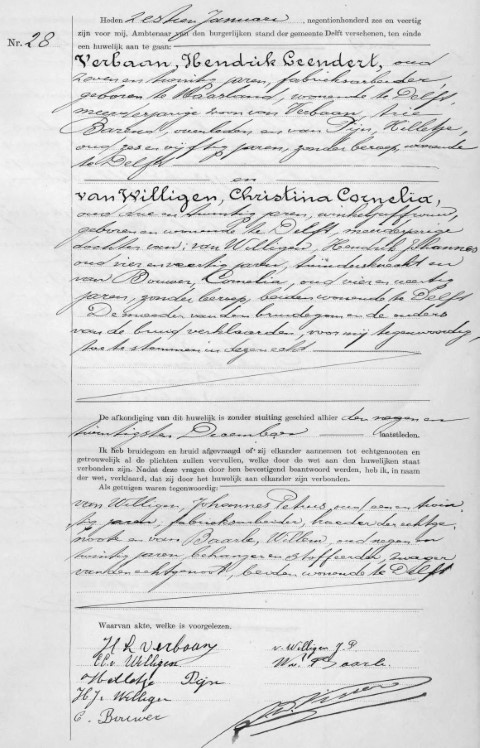 Heden zestien Januari, negentienhonderd zes en veertig
zijn voor mij, Ambtenaar van den burgerlijken stand der gemeente Delft verschenen, ten einde
een huwelijk aan te gaan:
Nr. 28
Verbaan, Hendrik Leendert, oud
zeven en twintig jaren, fabrieksarbeider,
geboren te Maasland, wonende te Delft,
meerderjarige zoon van Verbaan, Arie
Barend, overleden en van Pijn, Hilletje,
oud zes en vijftig jaren, zonder beroep, wonende
te Delft
en
van Willigen, Christina Cornelia,
oud drie en twintig jaren, winkeljuffrouw,
geboren en wonende te Delft, meerderjarige
dochter van: van Willigen, Hendrik Johannes
oud vier en veertig jaren, tuindersknecht en
van Bouwer, Cornelia, oud vier en veertig
jaren, zonder beroep, beiden wonende te Delft
De moeder van den bruidegom en de ouders
van de bruid verklaarden, voor mij tegenwoordig,
toe te stemmen in deze echt
De afkondiging van dit huwelijk is zonder stuiting geschied alhier den negen en
twintigsten December laatstleden.
Ik heb bruidegom en bruid afgevraagd of zij elkander aannemen tot echtgenooten en
getrouwelijk al de plichten zullen vervullen, welke door de wet aan den huwelijken staat
verbonden zijn. Nadat deze vragen door hen bevestigend beantwoord werden, heb ik, in naam
der wet, verklaard, dat zij door het huwelijk aan elkander zijn verbonden.
Als getuigen waren tegenwoordig:
van Willigen, Johannes Petrus, oud een en twin
tig jaren, fabrieksarbeider, broeder der echtge-
noote en van Baarle, Willem, oud negen en
twintig jaren, behanger en stoffeerder, zwager
van den echtgenoot, beiden wonende te Delft
Waarvan akte, welke is voorgelezen.
H L Verbaan
v. Willigen J. P.
CC v Willigen
Hilletje Pijn
H J v Willigen
C. Bouwer